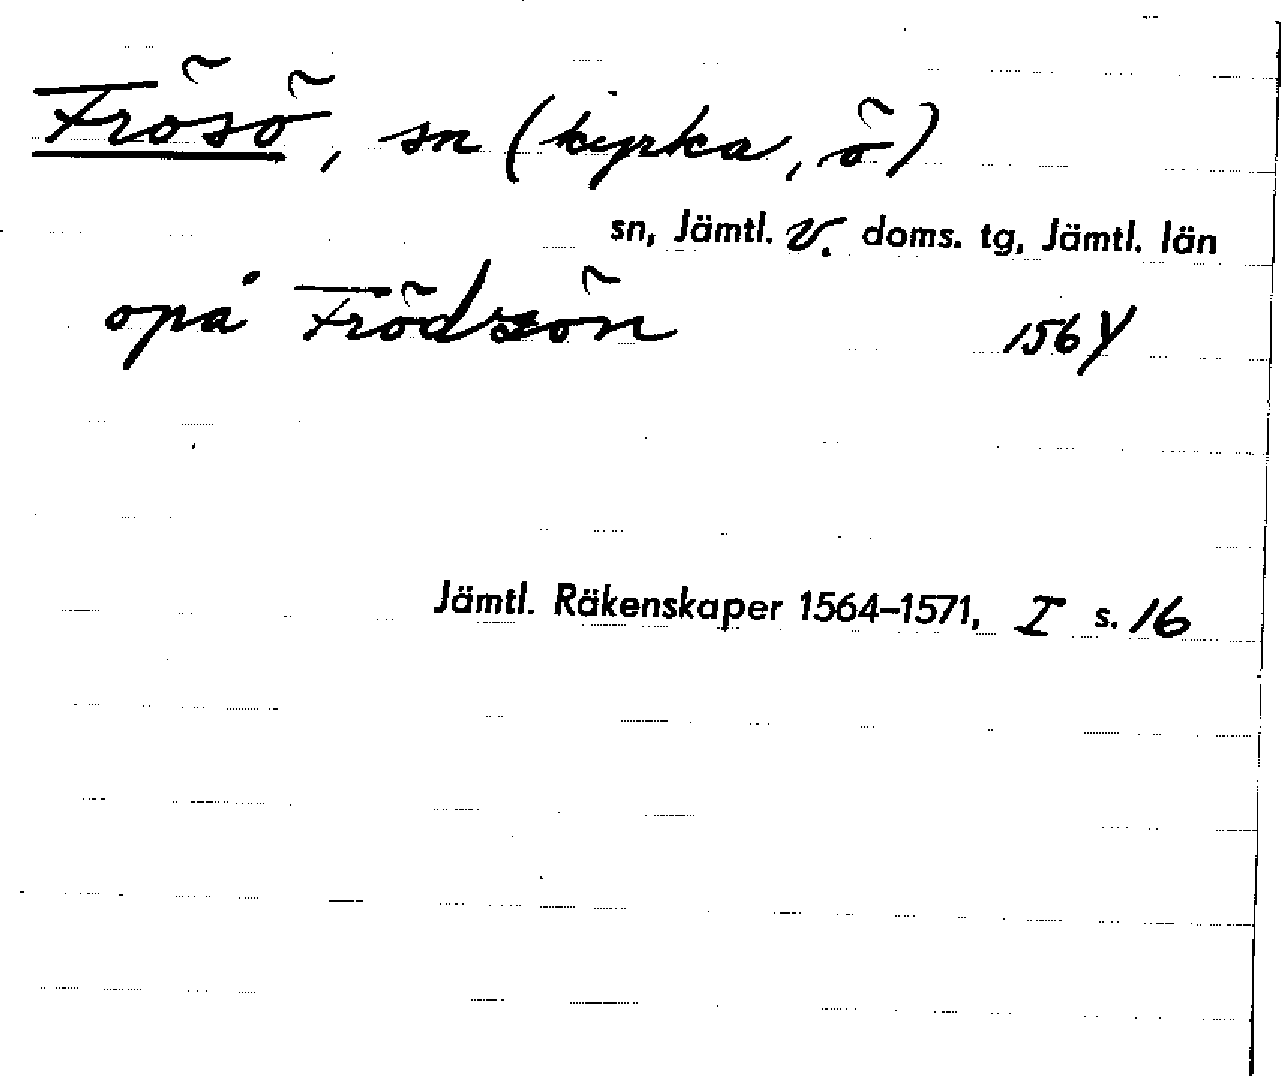 Frösö, sn (kyrka, ö)
sn, Jämtl. v. doms. tg, Jämtl. län
opå Frödzön 1564
Jämtl. Räkenskaper 1564–1571, I s. 16